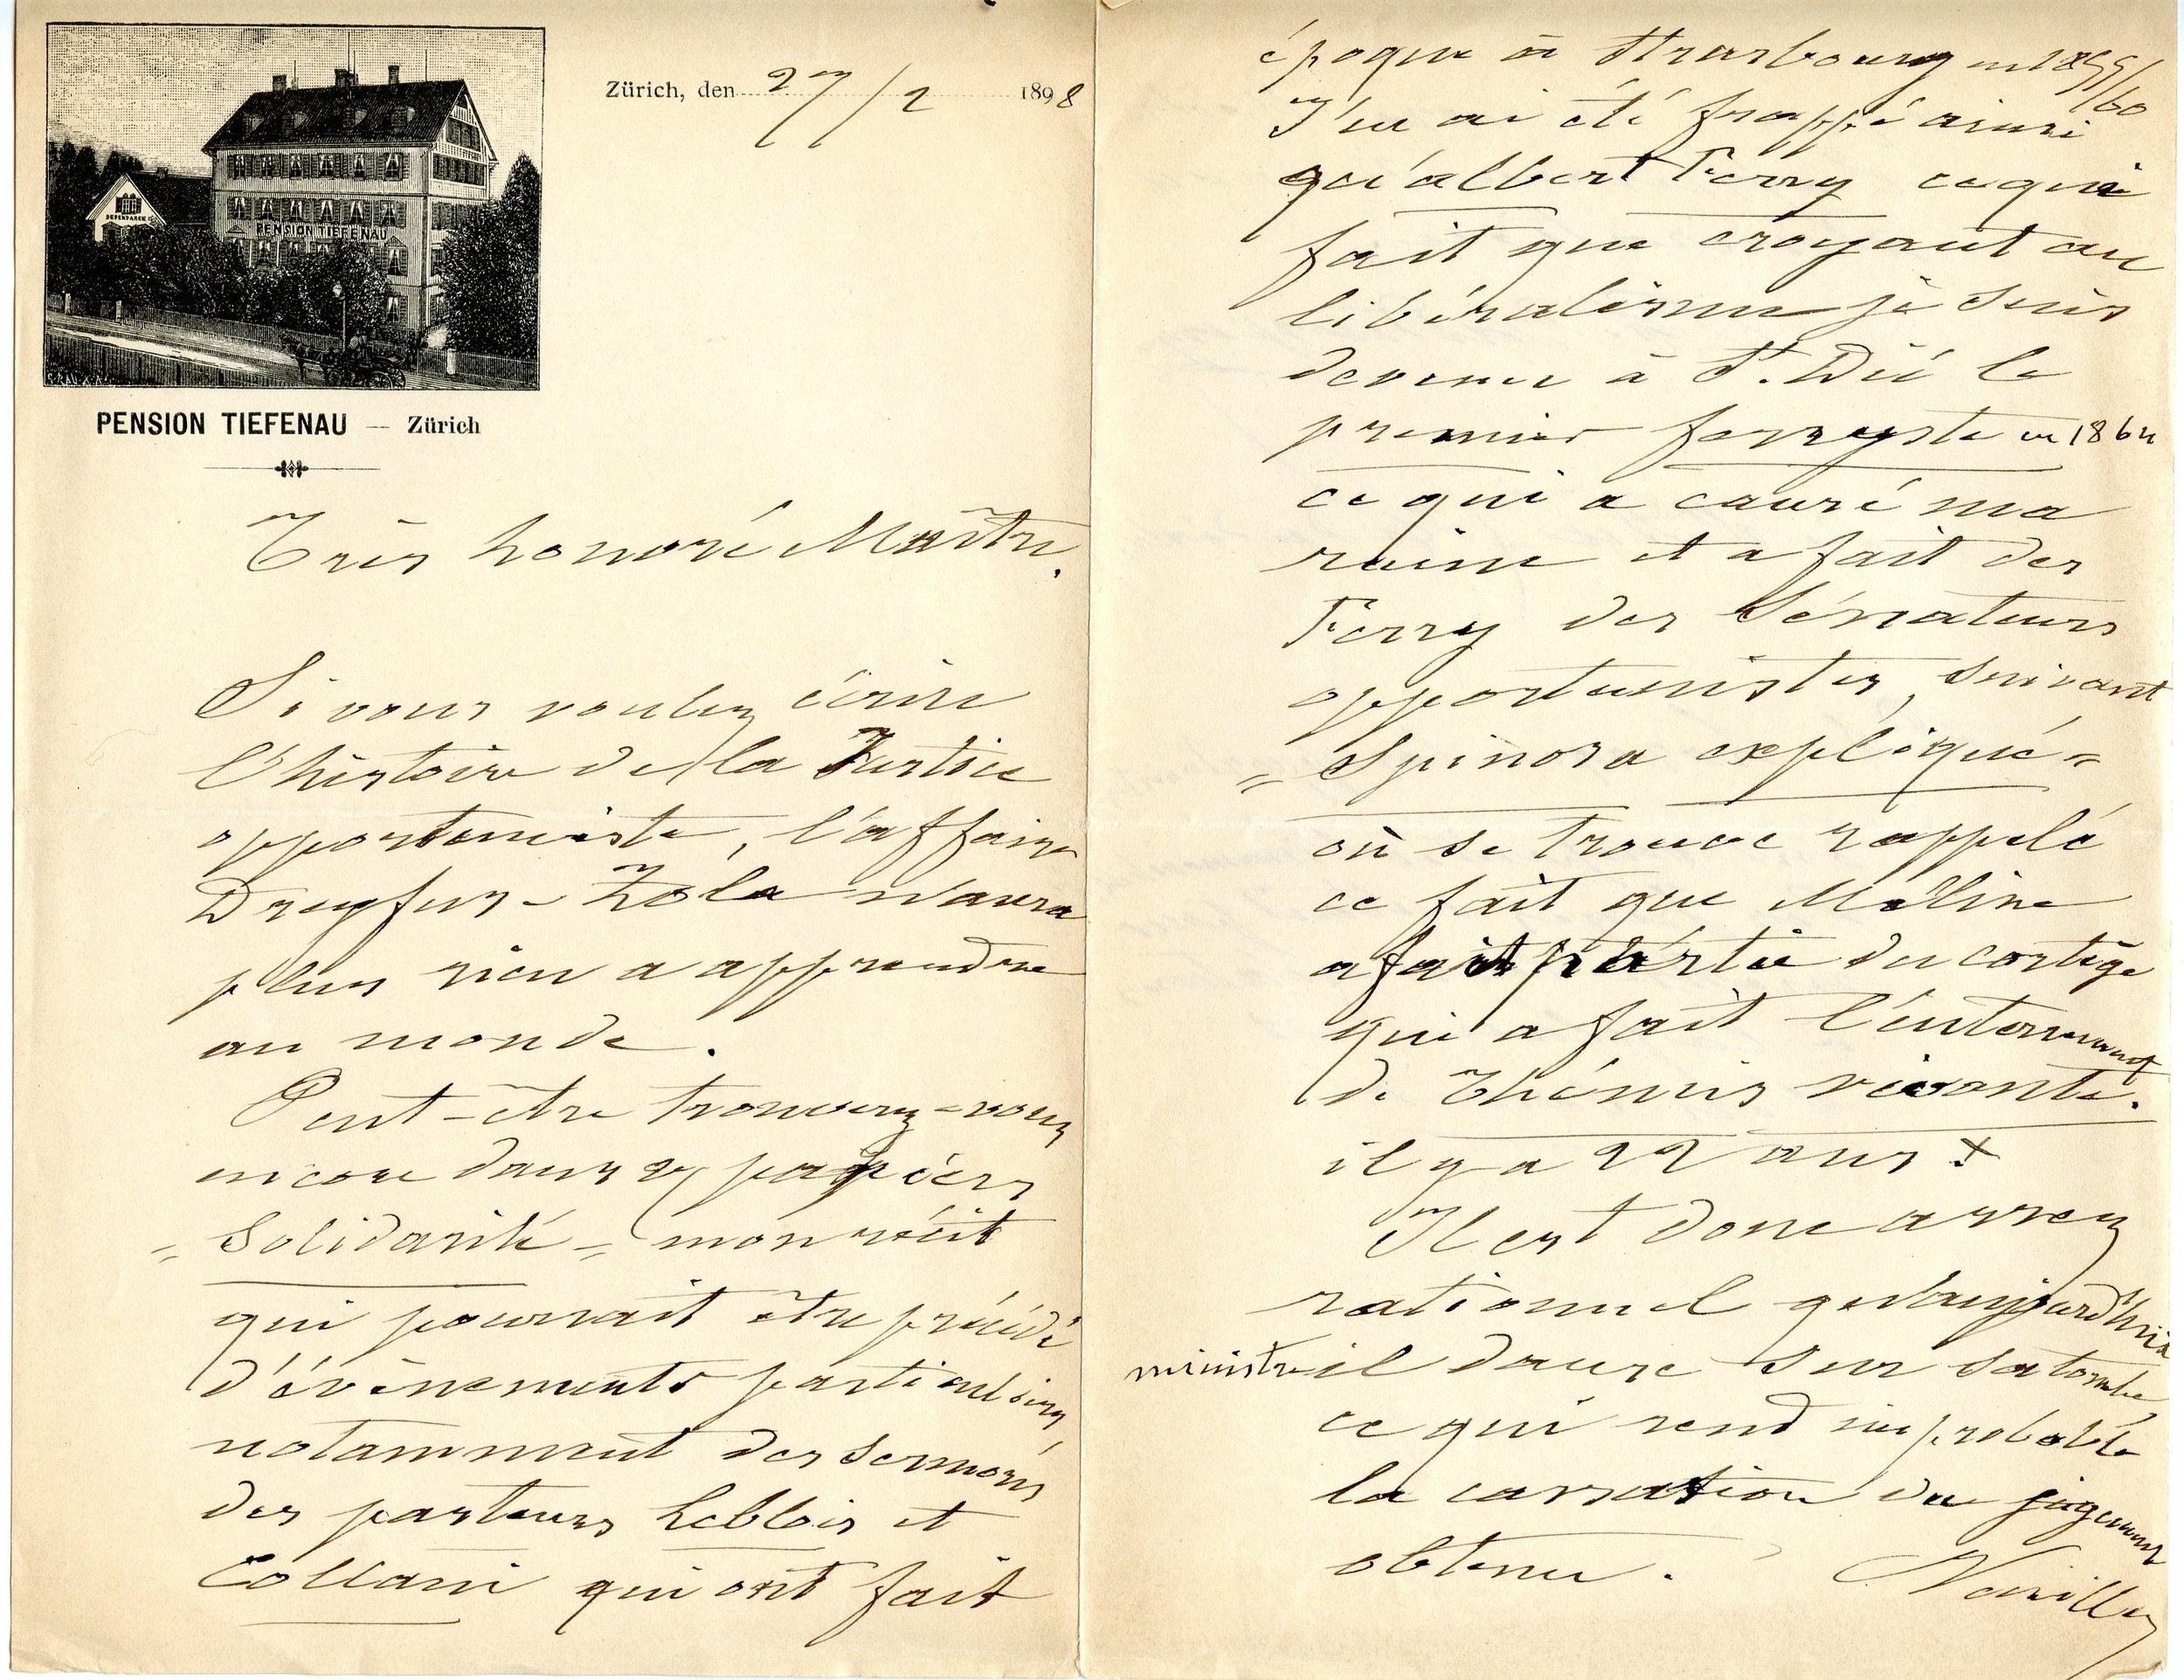 PENSION TIEFENAU
DEPENDANCE
PENSION TIEFENAU — Zürich
Zürich, den 27/2 1898
Très honoré Maître.
Si vous voulez écrire
l'histoire de la Justice
opportuniste, l'affaire
Dreyfus-Zola n'aura
plus rien a apprendre
au monde.
Peut-être trouverez-vous
encore dans vos papiers
"Solidarité" mon récit
qui pourrait être précédé
d'évènements particuliers
notamment des sermons
des pasteurs Leblois et
Collani qui ont fait
époque à Strasbourg en 1859/60
J'en ai été frappé ainsi
qu'albert Ferry ce qui
fait que croyant au
libéralisme je suis
devenu à St. Dié le
premier ferryste en 1864
ce qui a causé ma
ruine et a fait des
Ferry des Sénateurs
opportunistes, suivant
"Spinosa expliqué"
où se trouve rappelé
ce fait que Méline
a fait partie du cortège
qui a fait l'enterrement
de Thémis vivante.
il y a 22 ans !
Il est donc assez
rationnel qu'aujourd'hui
ministre il danse sur sa tombe
ce qui rend improbable
la cassation du jugement
obtenu.